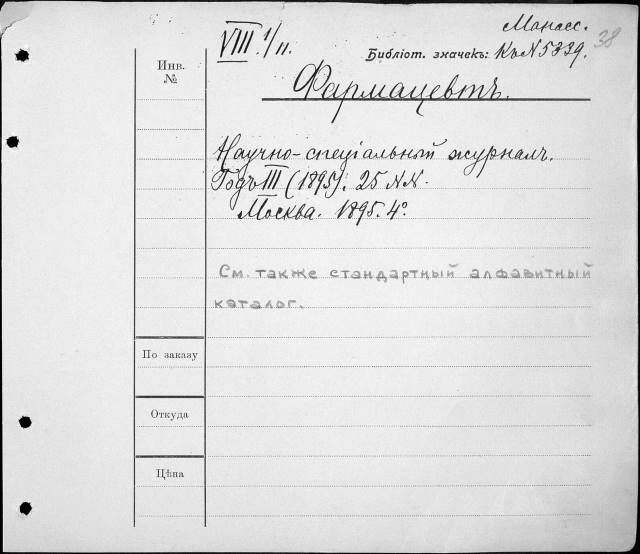 Манас.
38
VIII 1/11.
Библіот. значекъ: Къ N 5339.
Инв.
№
Фармацевтъ.
Научно-спеціальный журналъ.
Годъ III (1895). 25 NN.
Москва. 1895. 4°.
См. также стандартный алфавитный
каталог.
По заказу
Откуда
Цѣна